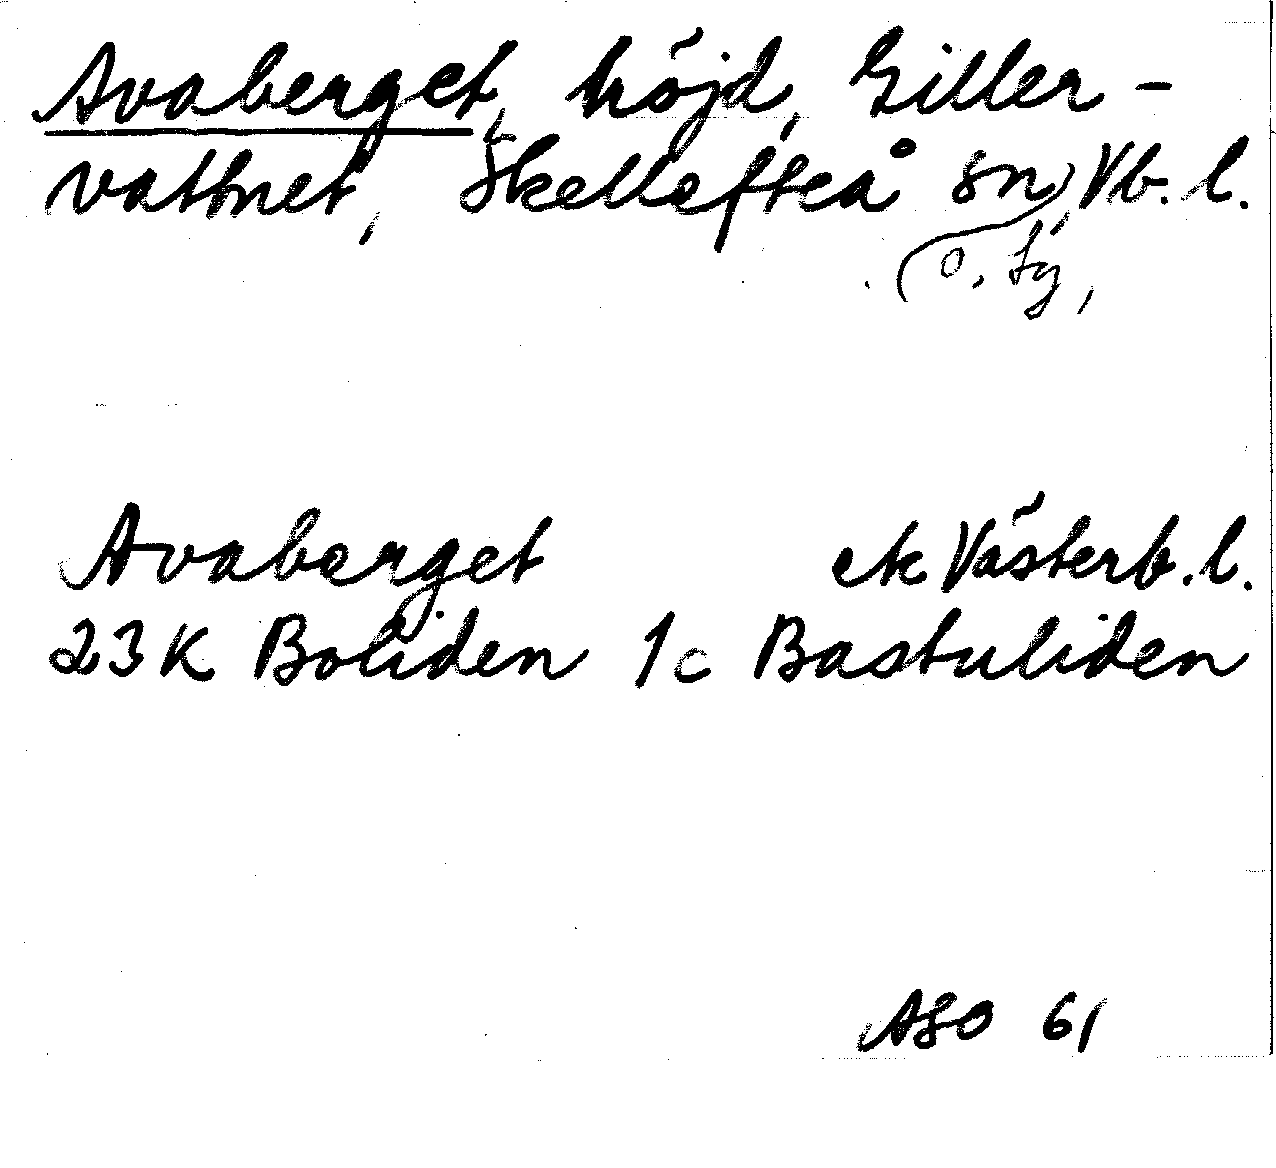 Avaberget, höjd, Giller-
vattnet, Skellefteå sn, Vb. l.
o. ty,
Avaberget ek Västerb. l.
23 K Boliden 1 c Bastuliden
ASO 61